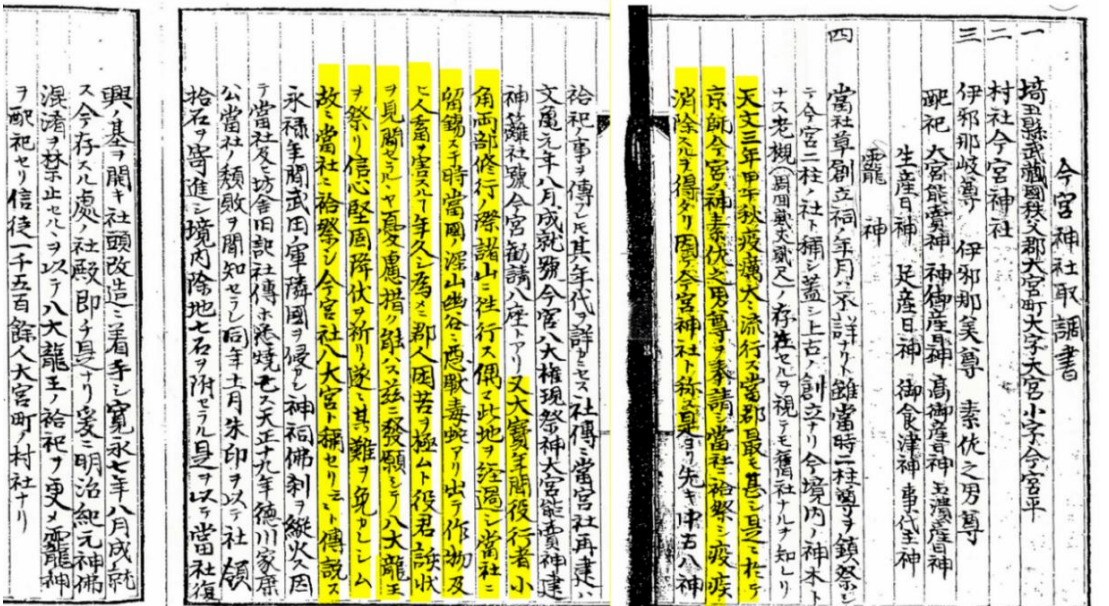 今宮神社取調書
一 埼玉縣武藏國秩父郡大宮町大字大宮小字今宮平
二 村社今宮神社
三 伊邪那岐尊 伊邪那美尊 素佐之男尊
配祀 大宮能賣神 神御産日神 髙御産日神 玉濃産日神
生産日神 足産日神 御食津神 事代主神
靇神
四 當社草創立祠ノ年月ハ不詳ナリト雖當時二柱尊ヲ鎮祭シ
テ今宮二柱ノ社ト稱シ蓋シ上古ノ創立ナリ今境内ノ神木ト
ナス老槻ノ存在セルヲ視テモ舊社ナルヲ知レリ
天文三年甲午秋疫癘大ニ流行ス當郡最モ甚シ是ニ於テ
京師今宮ノ神素佐之男尊ヲ奏請シ當社ニ祫祭シ疫疾
消除スルヲ得タリ因テ今宮神社ト称ス是ヨリ先キ中古八神
祫祀ノ事ヲ傳レ𪜈其年代ヲ詳カニセス社傳ニ當宮社再建ハ
文亀元年八月成就號今宮八大権現祭神大宮能賣神建
神籬社號今宮勧請八座トアリ又大寳年間役行者小
角両部修行ノ際諸山ニ往行ス偶マ此地ヲ経過シ當社ニ
留錫ス于時當國ノ深山幽谷ニ悪獣毒蛇アリ出テ作物及
ヒ人畜ヲ害スル丁年久シ為メニ郡人困苦ヲ極ムト役君誤状
ヲ見聞セラレヤ憂慮措ク能ハス茲ニ發願シテ八大龍王
ヲ祭リ信心堅固降伏ヲ祈リ遂ニ其難ヲ免カレシム
故ニ當社ニ祫祭シ今宮社八大宮ト稱セリ云ニト傳説ス
永禄年間武田ノ軍隣國ヲ侵シ神祠佛刹ヲ縦火ス因
テ當社及ヒ坊舎旧記社傳ホ悉焼セス天正十九年徳川家康
公當社ノ頽敗ヲ聞知セラレ同年十一月朱印ヲ以テ社領
拾石ヲ寄進シ境内除地七石ヲ附セラル是ヲ以テ當社復
興ノ基ヲ開キ社頭改造ニ着手シ寛永七年八月成就
ス今存スル處ノ社殿即チ是ナリ爰ニ明治紀元神佛
混淆ヲ禁止セルヲ以テ八大龍王ノ祫祀ヲ更メ靇神
ヲ配祀セリ信徒一千五百餘人大宮町ノ村社ナリ